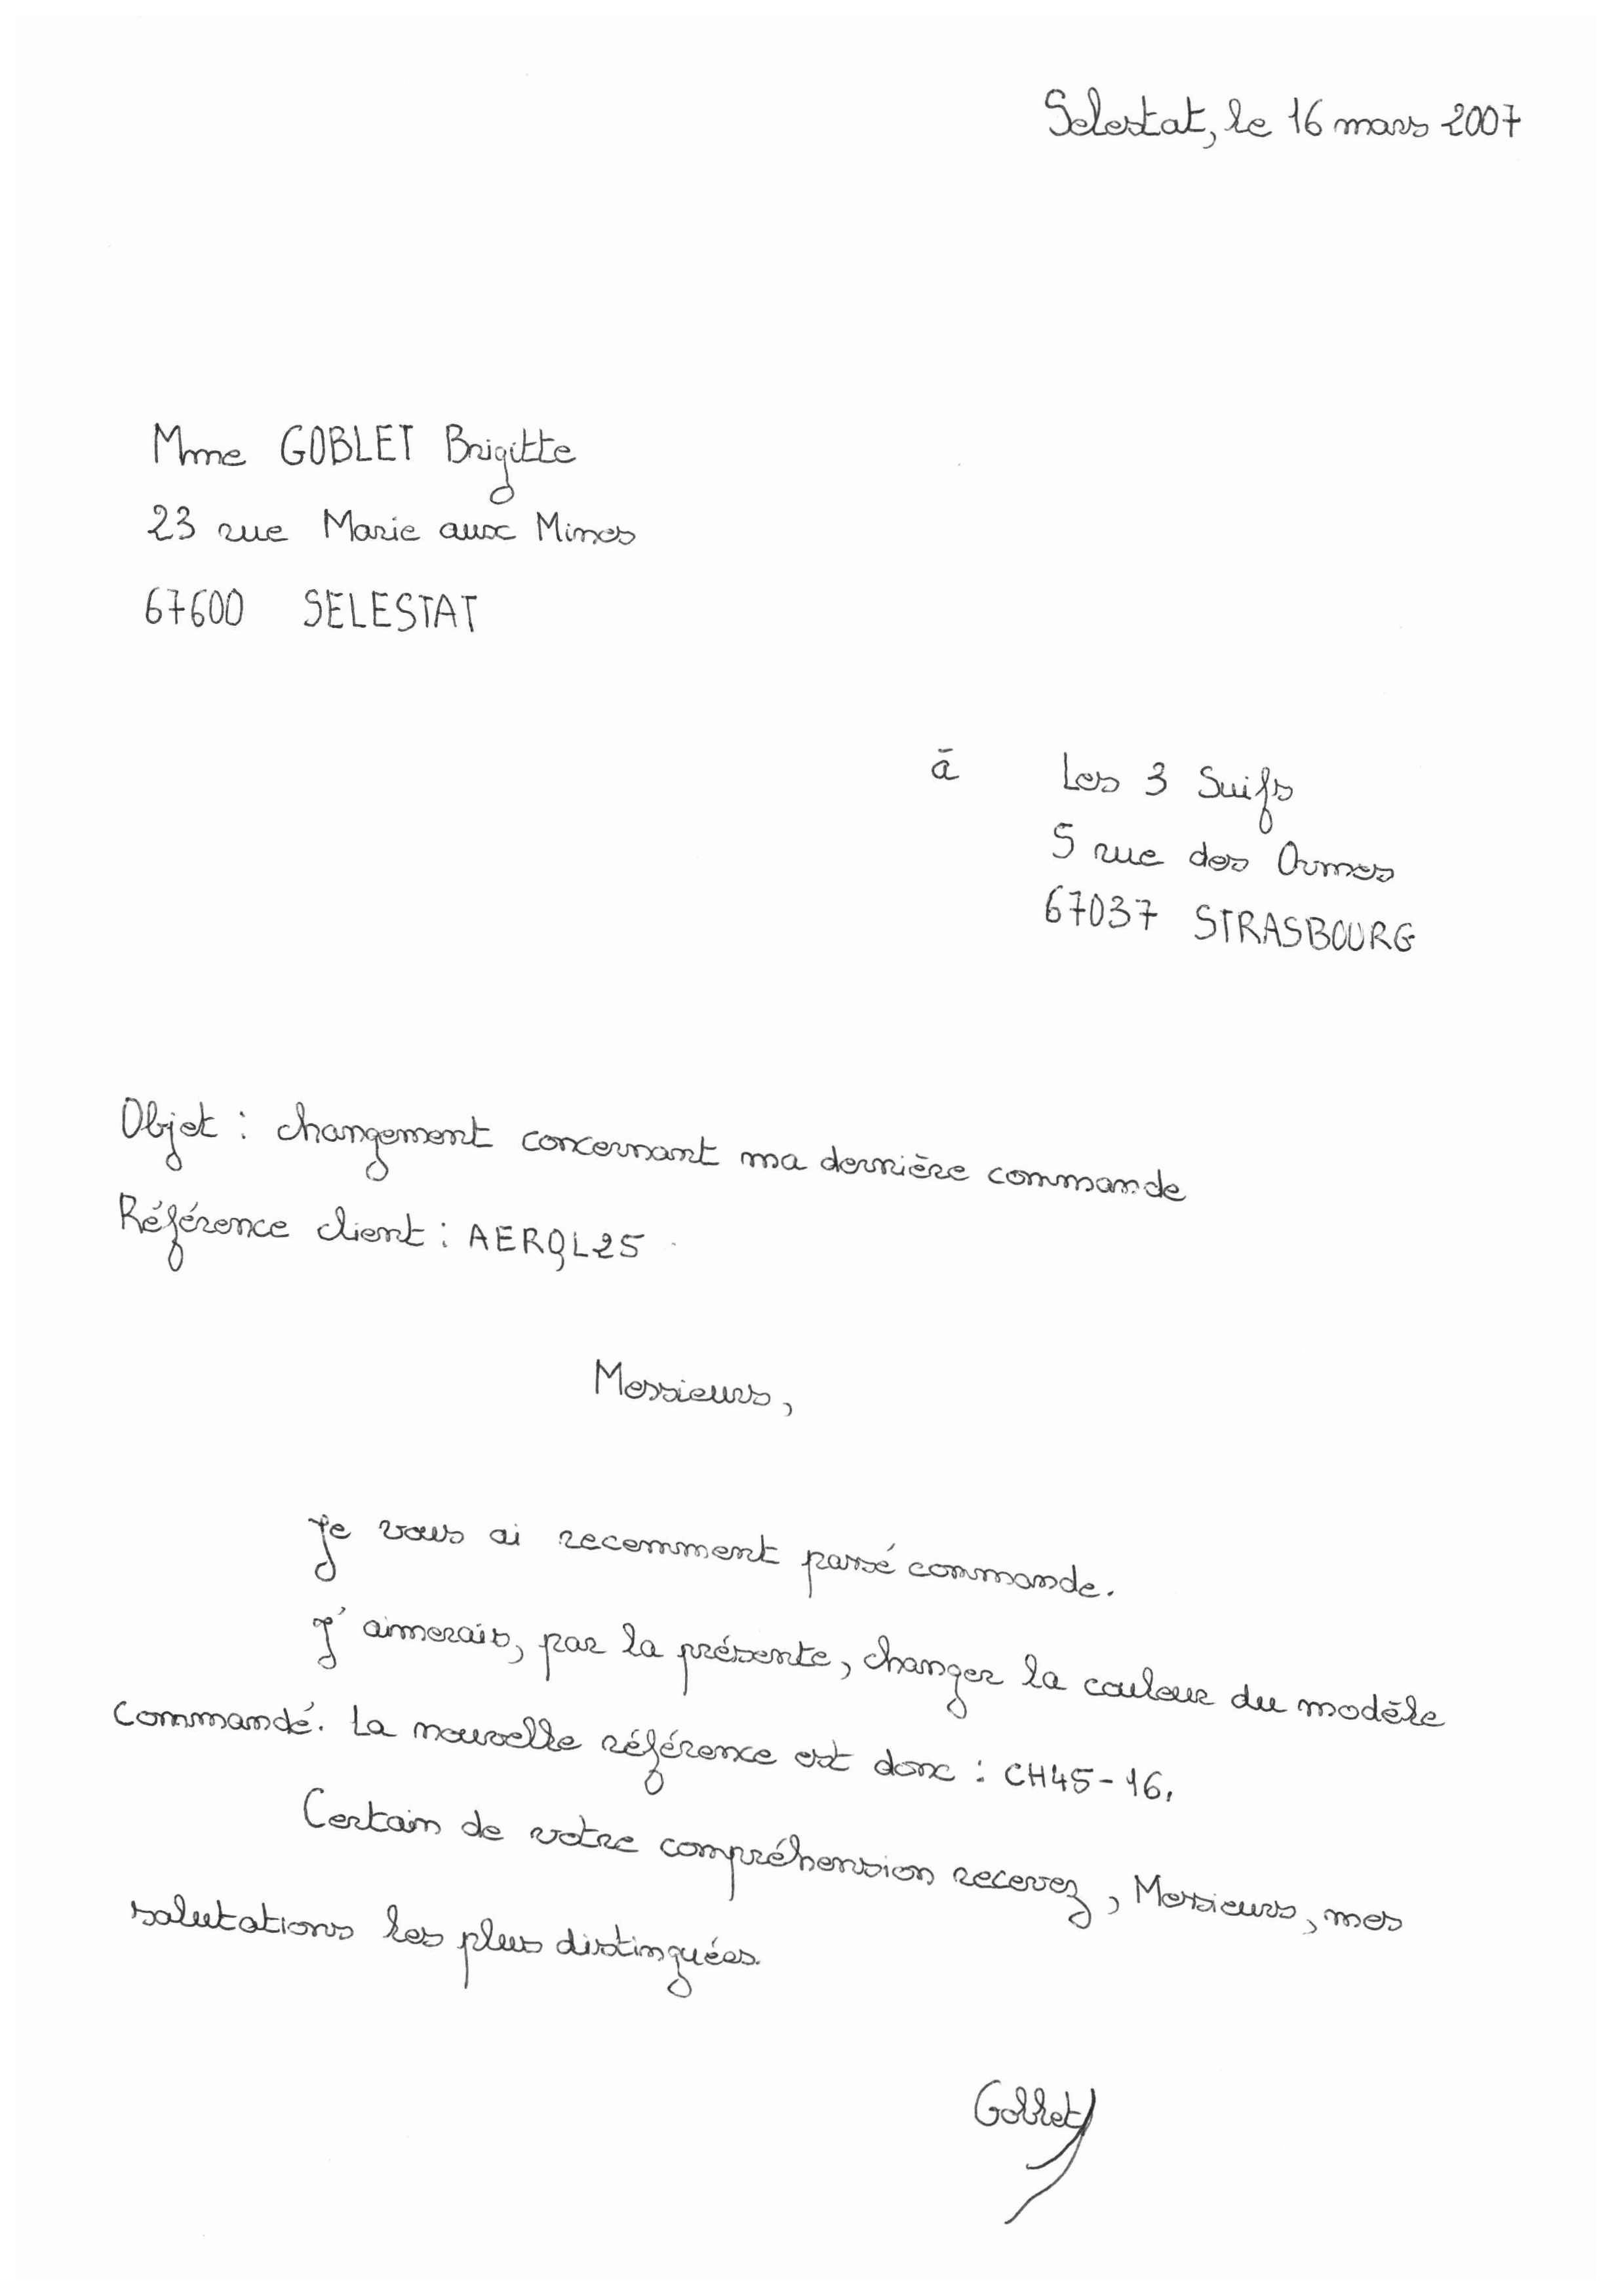 Selestat, le 16 mars 2007
Mme GOBLET Brigitte
23 rue Marie aux Mines
67600 SELESTAT
à Les 3 Suifs
5 rue des Ormes
67037 STRASBOURG
Objet : changement concernant ma dernière commande
Référence client : AERQL25
Messieurs,
Je vous ai recemment passé commande.
J'aimerais, par la présente, changer la couleur du modèle
commandé. La nouvelle référence est donc : CH45-16.
Certain de votre compréhension recevez, Messieurs, mes
salutations les plus distinguées.
Goblet